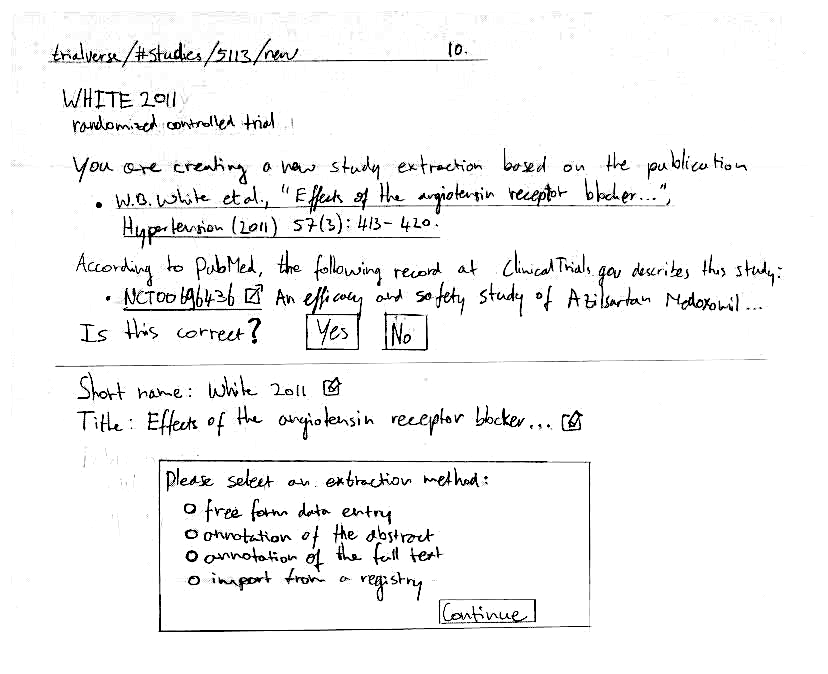 trialverse/#studies/5113/new 10.
WHITE 2011
randomized controlled trial
You are creating a new study extraction based on the publication
• W.B. White et al., "Effects of the angiotensin receptor blocker...",
Hypertension (2011) 57(3): 413-420.
According to PubMed, the following record at ClinicalTrials.gov describes this study:
• NCT00696436 An efficacy and safety study of Azilsartan Medoxomil...
Is this correct? Yes No
Short name: White 2011
Title: Effects of the angiotensin receptor blocker...
Please select an extraction method:
free form data entry
annotation of the abstract
annotation of the full text
import from a registry
Continue